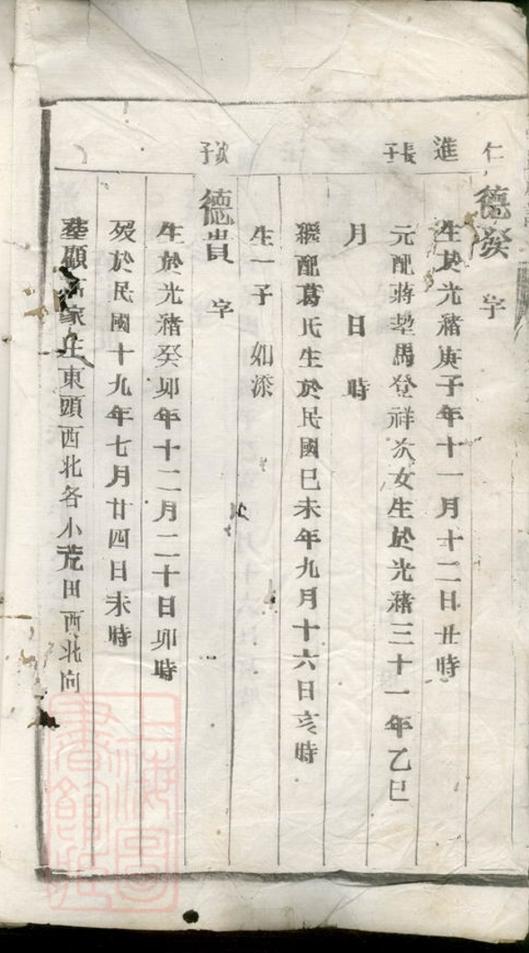 仁進長子
德發 字
生於光緒庚子年十一月十二日丑時
元配蔣墅馬登祥次女生於光緒三十一年乙巳
月 日 時
繼配葛氏生於民國己未年九月十六日亥時
生一子 如深
次子
德貴 字
生於光緒癸卯年十二月二十日卯時
歿於民國十九年七月廿四日未時
塟顧 家 東頭西北各小荒田西北向
上海圖書館藏